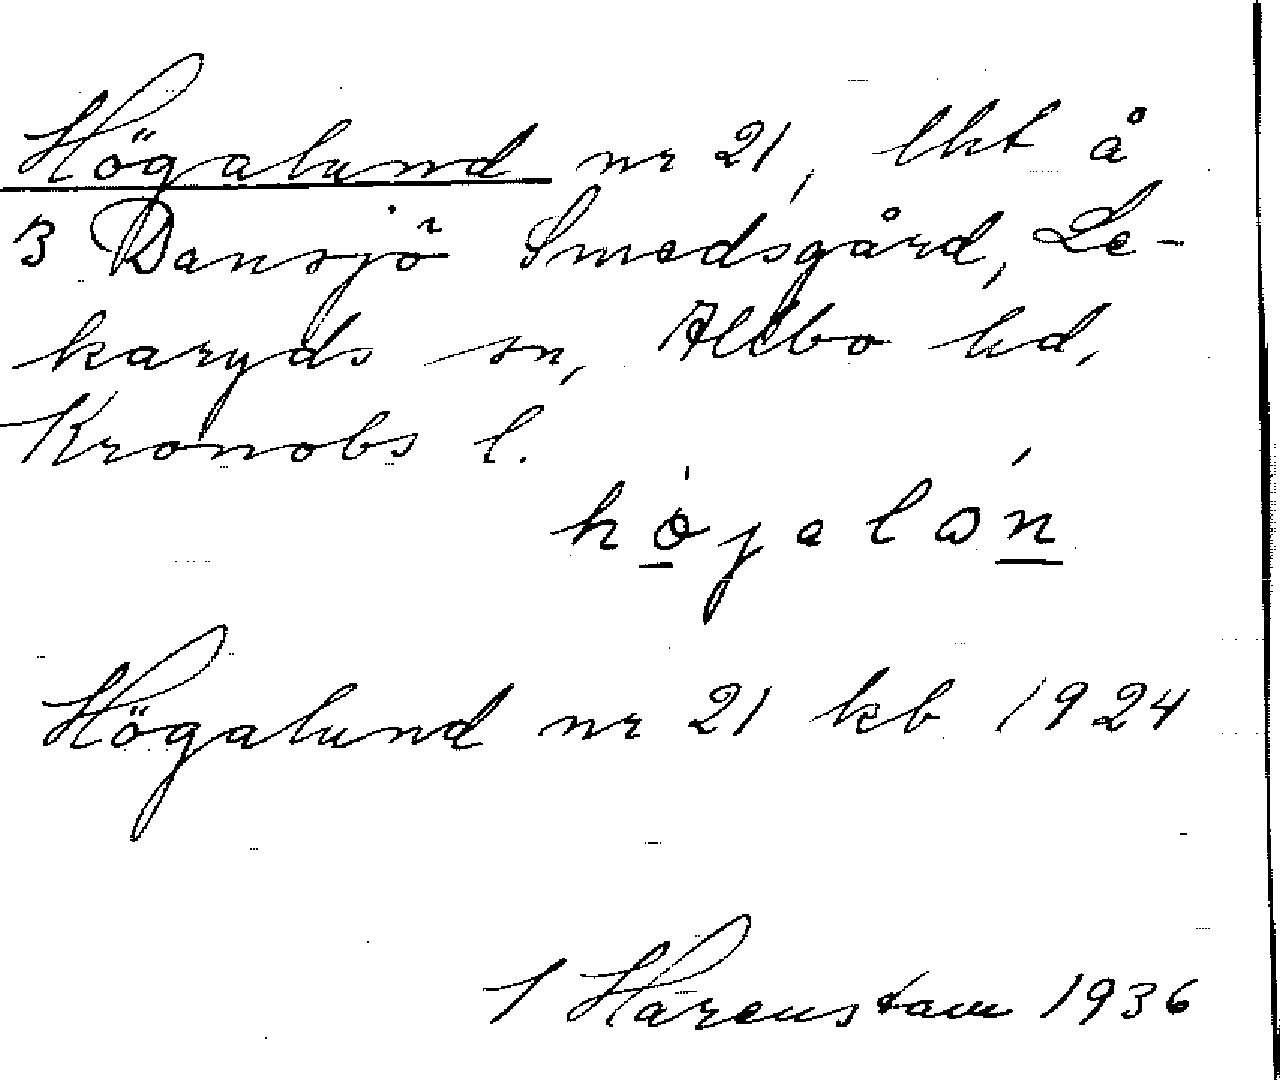 Högalund nr 21, lht å
3 Dansjö Smedsgård, Le-
karyds sn, Allbo hd,
Kronobs l.
Högalund nr 21 kb 1924
Härenstam 1936